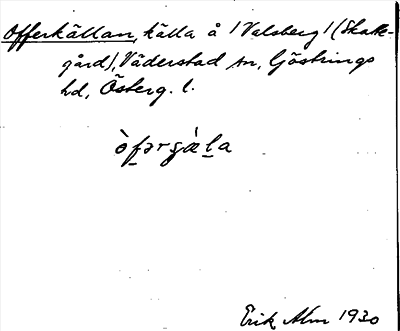 Offerkällan, källa å /Valsberg/ (Skatte-
gård), Väderstad sn, Göstrings
hd, Österg. l.
òfərgæ̀la
Erik Alm 1930